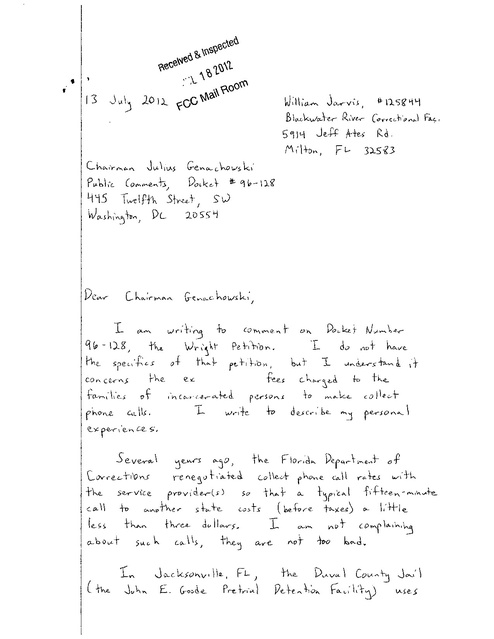 Received & Inspected
JUL 18 2012
FCC Mail Room
13 July 2012
William Jarvis, #125844
Blackwater River Correctional Fac.
5914 Jeff Ates Rd.
Milton, FL 32583
Chairman Julius Genachowski
Public Comments, Docket # 96-128
445 Twelfth Street, SW
Washington, DC 20554
Dear Chairman Genachowski,
I am writing to comment on Docket Number
96-128, the Wright Petition. I do not have
the specifics of that petition, but I understand it
concerns the ex fees charged to the
families of incarcerated persons to make collect
phone calls. I write to describe my personal
experiences.
Several years ago, the Florida Department of
Corrections renegotiated collect phone call rates with
the service provider(s) so that a typical fifteen-minute
call to another state costs (before taxes) a little
less than three dollars. I am not complaining
about such calls, they are not too bad.
In Jacksonville, FL, the Duval County Jail
(the John E. Goode Pretrial Detention Facility) uses